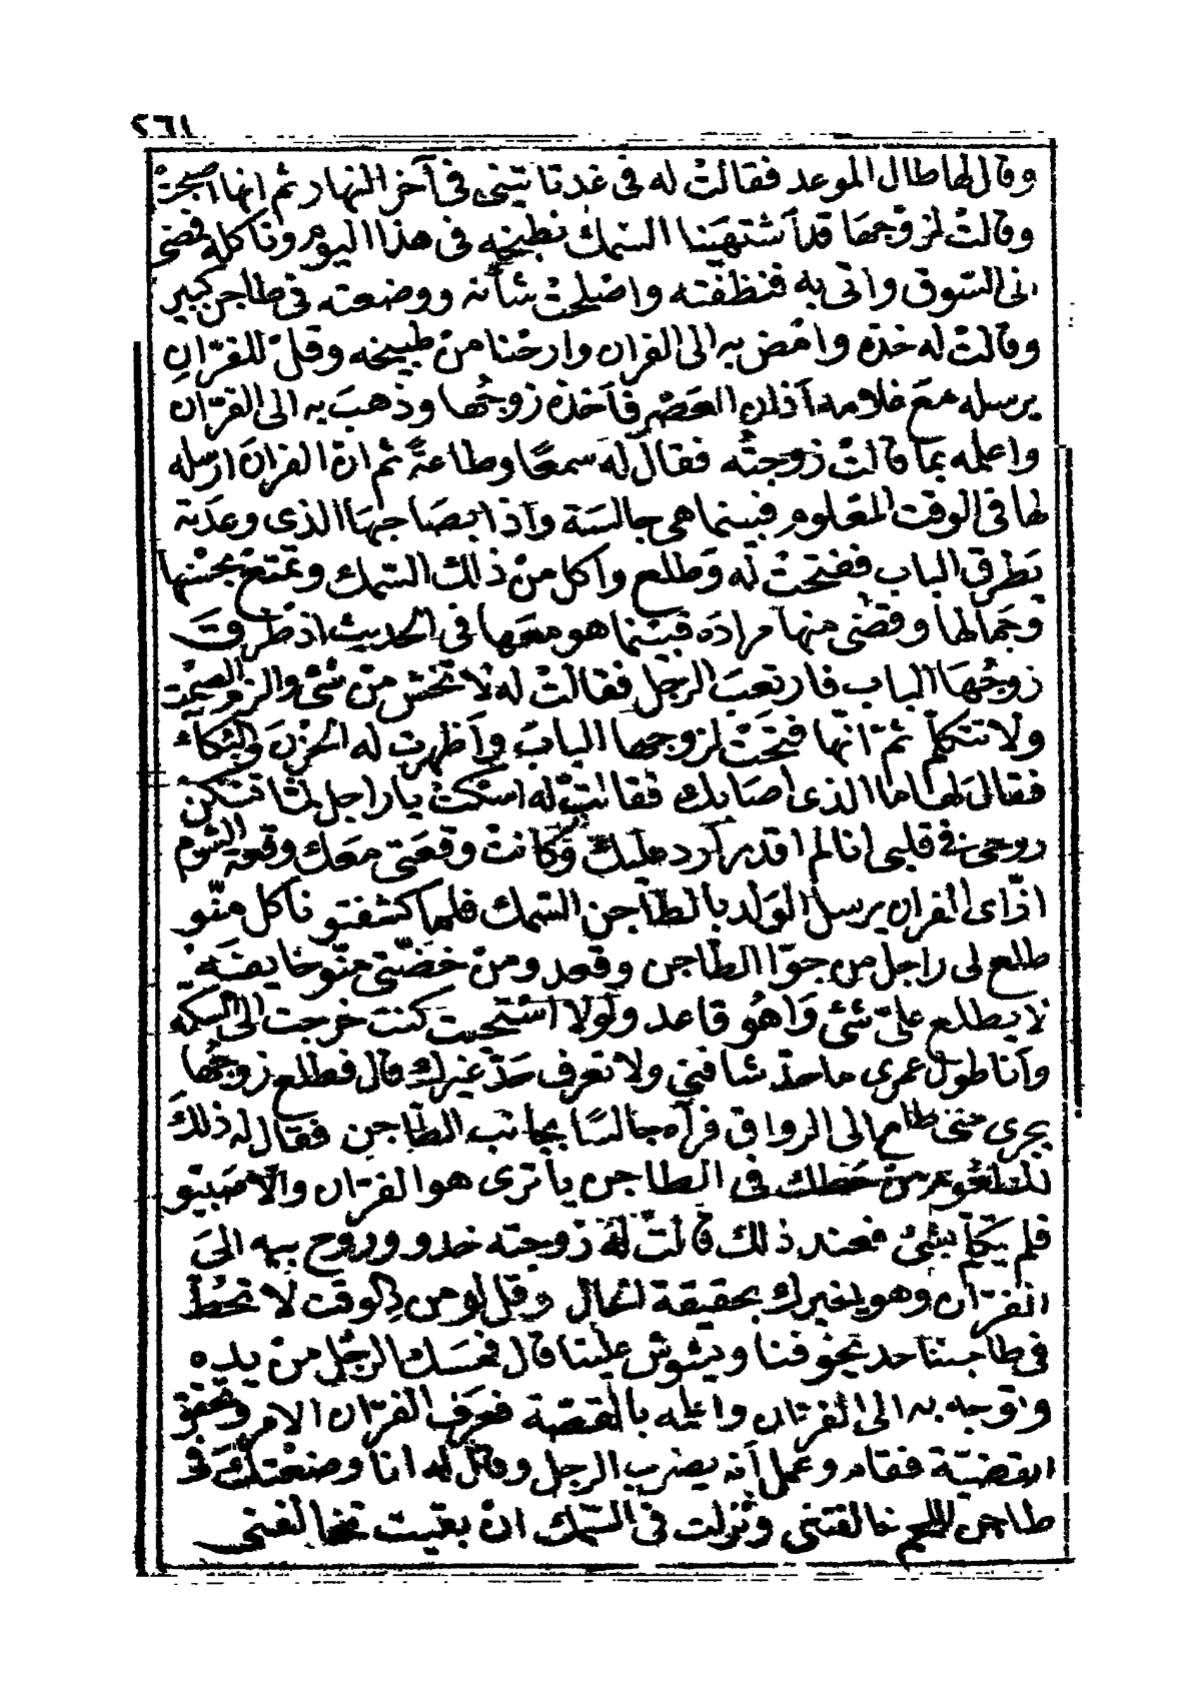 ٢٦١
وقال لها طال الموعد فقالت له في غد تاتيني في آخر النهار ثم انها أصبحت
وقالت لزوجها قد اشتهينا السمك نطبخه في هذا اليوم وناكله فمضى
الى السوق واتى به فنظفته واصلحت شأنه ووضعته في طاجن كبير
وقالت له خذه وامض به الى الفران وارحنا من طبيخه وقل للفران
يرسله مع غلامه أذان العصر فأخذه زوجها وذهب به الى الفران
واعلمه بما قالت زوجته فقال له سمعًا وطاعةً ثم ان الفران ارسله
لها في الوقت المعلوم فبينما هي جالسة واذا بصاحبها الذي وعدته
يطرق الباب ففتحت له وطلع واكل من ذلك السمك وتمتع بحسنها
وجمالها وقضى منها مراده فبينما هو معها في الحديث اذ طرق
زوجها الباب فارتعب الرجل فقالت له لا تخش من شئ والزم الصمت
ولا تتكلم ثم انها فتحت لزوجها الباب وأظهرت له الحزن والبكاء
فقال لها ما الذي اصابك فقالت له اسكت يا راجل لما تسكن
روحي في قلبي انا لم اقدر أرد عليك وكانت وقعتي معك وقعة الشوم
اذّاى الفران يرسل الولد بالطاجن السمك فلما كشفتو ناكل منّو
طلع لي راجل من جوّا الطاجن وقعد ومن خضّتي منّو خايفه
لا يطلع عليّ شئ واهُو قاعد ولولا استحيت كنت خرجت الى السكه
وأنا طول عمري ما حدّ شافني ولا تعرف حدّ غيرك قال فطلع زوجها
يجري حتى طلع الى الرواق فرآه جالسًا بجانب الطاجن فقال له ذلك
من حطك في الطاجن يا ترى هوا الفرّان والا صبيّو
فلم يتكلم بشئ فعند ذلك قالت له زوجته خدو وروح بيه الى
الفرّان وهو يخبرك بحقيقة الحال وقل لو من دِالوقت لا تحط
في طاجننا حد يخوفنا ويشوش علينا قال فمسك الرجل من يده
وتوجه به الى الفرّان واعلمه بالقصّة فعرف الفرّان الامر وتحقق
القضيّة فقام وعمل أنه يضرب الرجل وقال له انا وضعتك في
طاجن اللحم خالفتني ونزلت في السمك ان بقيت تخالفني